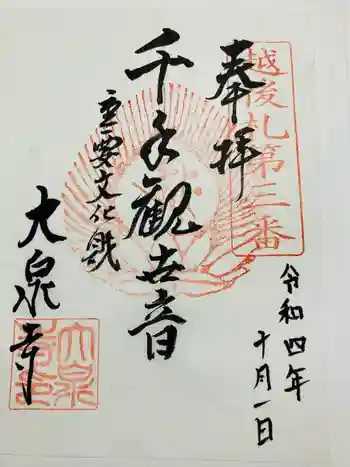 奉拝
越後札第三番
令和四年
十月一日
千手観世音
重要文化財
大泉寺
大泉寺印